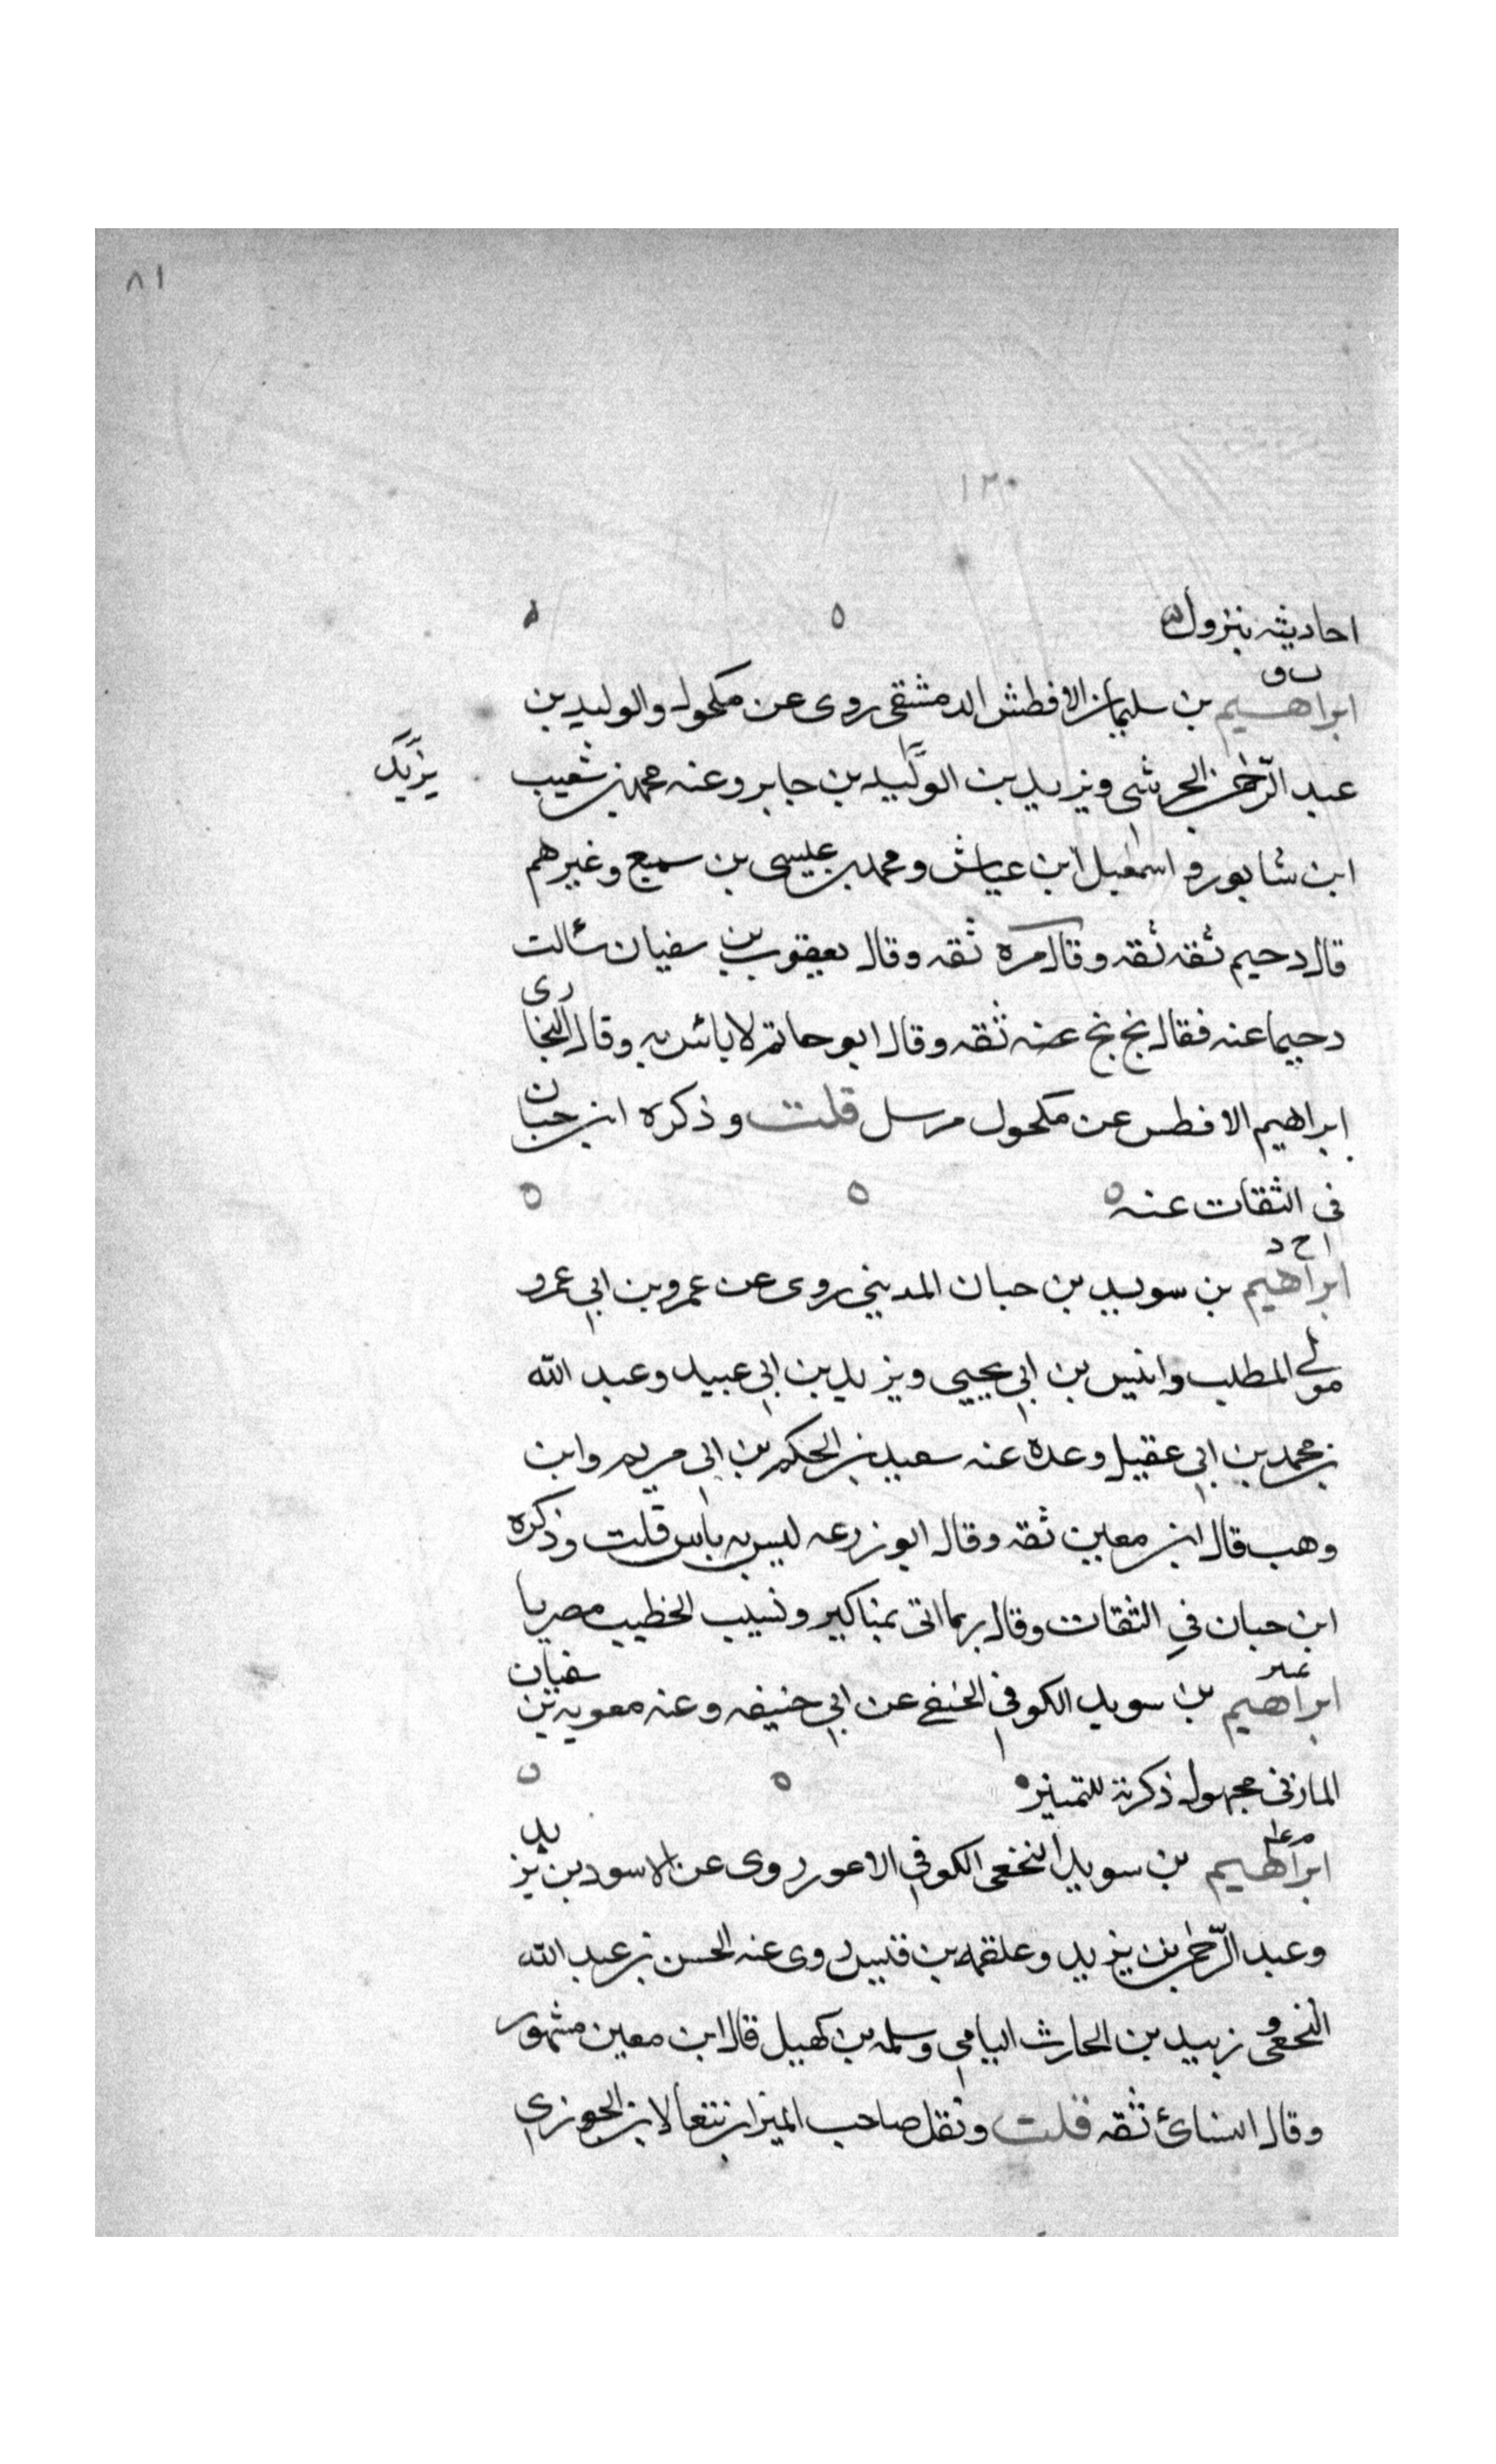 ٨١
١٢٠
احاديثه بنزول
ابراهيم بن سليمان الافطس الدمشقى روى عن مكحول والوليد بن
عبد الرحمن الجرشى ويزيد بن الوليد بن جابر وعنه محمد بن شعيب
يزيد
ابن شابور و اسمعيل ابن عياش ومحمد بن عيسى بن سميع وغيرهم
قال دحيم ثقه ثقه وقال مره ثقه وقال يعقوب بن سفيان سألت
دحيما عنه فقال بخ بخ عنه ثقه وقال ابو حاتم لا بأس به وقال البخارى
ابراهيم الافطس عن مكحول مرسل قلت وذكره ابن حبان
فى الثقات عنه
ا خ د
ابراهيم بن سويد بن حبان المدينى روى عن عمرو بن ابى عمرو
مولى المطلب وانيس بن ابى يحيى ويزيد بن ابى عبيد وعبد الله
بن محمد بن ابى عقيل وعده عنه سعيد بن الحكم بن ابى مريم وابن
وهب قال ابن معين ثقه وقال ابو زرعه ليس به باس قلت وذكره
ابن حبان فى الثقات وقال ربما اتى بمناكير ونسبه الخطيب مصريا
ابراهيم بن سويد الكوفى الحنفى عن ابى حنيفه وعنه معويه بن سفيان
المازنى مجهول ذكرته للتمييز
ابراهيم بن سويد النخعى الكوفى الاعور روى عن الاسود بن يزيد
وعبد الرحمن بن يزيد وعلقمه بن قيس روى عنه الحسن بن عبد الله
النخعى و زبيد بن الحارث اليامى وسلمه بن كهيل قال ابن معين مشهور
وقال النسائ ثقه قلت ونقل صاحب الميزان تبعا لابن الجوزى